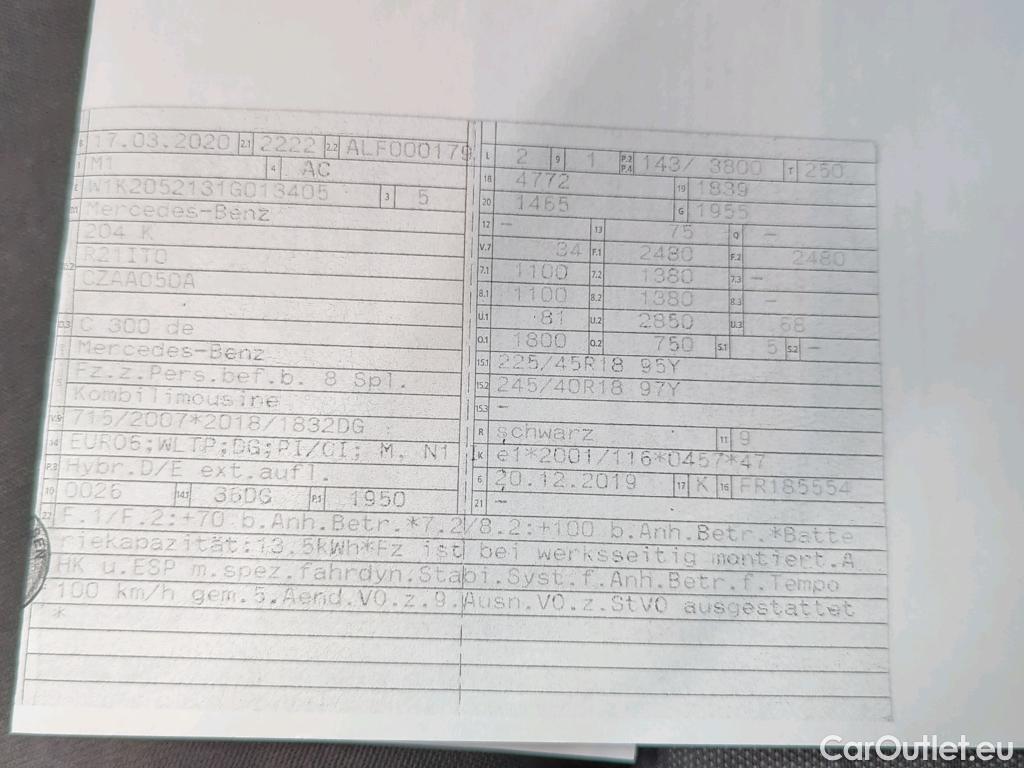 B 17.03.2020 2.1 2222 2.2 ALF000179
J M1 4 AC
E W1K2052131G013405 3 5
D.1 Mercedes-Benz
204 K
D.2 R21IT0
CZAA050A
D.3 C 300 de
Mercedes-Benz
5 Fz.z.Pers.bef.b. 8 Spl.
Kombilimousine
V.9 715/2007*2018/1832DG
14 EURO6;WLTP;DG;PI/CI; M, N1 I
P.3 Hybr.D/E ext.aufl.
10 0026 14.1 36DG P.1 1950
L 2 9 1 P.2 P.4 143/ 3800 T 250
18 4772 19 1839
20 1465 G 1955
12 - 13 75 Q -
V.7 34 F.1 2480 F.2 2480
7.1 1100 7.2 1380 7.3 -
8.1 1100 8.2 1380 8.3 -
U.1 81 U.2 2850 U.3 68
O.1 1800 O.2 750 S.1 5 S.2 -
15.1 225/45R18 95Y
15.2 245/40R18 97Y
15.3 -
R schwarz 11 9
K e1*2001/116*0457*47
6 20.12.2019 17 K 16 FR185554
21 -
22 F.1/F.2:+70 b.Anh.Betr.*7.2/8.2:+100 b.Anh.Betr.*Batte
riekapazität:13.5kWh*Fz ist bei werksseitig montiert.A
HK u.ESP m.spez.fahrdyn.Stabi.Syst.f.Anh.Betr.f.Tempo
100 km/h gem.5.Aend.VO.z.9.Ausn.VO.z.StVO ausgestattet
*
CarOutlet.eu